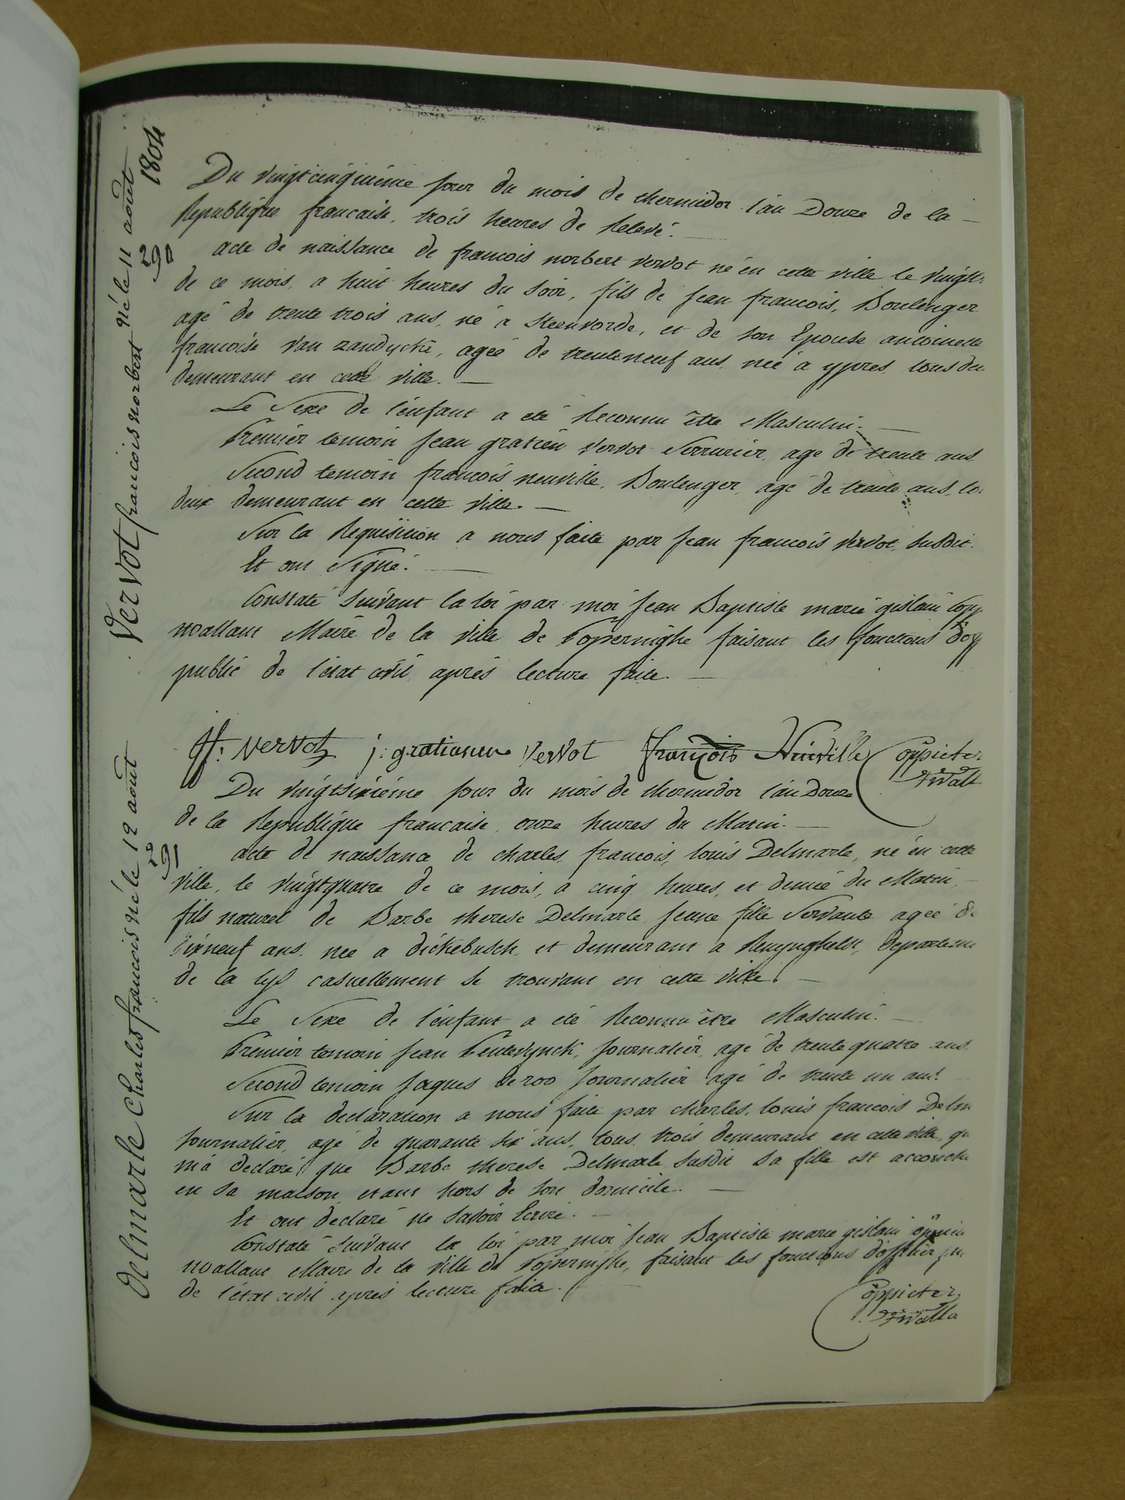 1804
Vervot francois norbert né le 11 août
290
Du vingtcinquieme jour du mois de thermidor l'an Douze de la
Republique francaise, trois heures de Relevé.
acte de naissance de francois norbert vervot né en cette ville le vingt
de ce mois, a huit heures du Soir, fils de jean francois, Boulenger
agé de trente trois ans, né a Steenvorde, et de son Epouse antoinette
francoise van zandycke, ageé de trenteneuf ans neé à ypres tous deu
demeurant en cette ville.
Le Sexe de l'enfant a eté Reconnu être Masculin.
Premier temoin jean gratien vervot Serrurier, age de trente ans
Second temoin francois neuville, Boulenger, agé de trente ans, le
deux demeurant en cette ville.
Sur la Requisition a nous faite par jean francois vervot susdit.
Et ont Signé.
Constaté Suivant la loi par moi jean Baptiste marie gislain Copp
wallant Maire de la ville de Poperinghe faisant les fonctions d'off
public de l'état civil après lecture faite.
jf: vervot j: gratianeu vervot françois Neuville Coppieter
Delmarle Charles francois né le 12 août
291
Du vingtsixieme jour du mois de thermidor l'an Douze
de la Republique francaise onze heures du Matin.
acte de naissance de charles francois louis Delmarle, né en cette
ville, le vingtquatre de ce mois, a cinq heures et demie du Matin,
fils naturel de Barbe therese Delmarle jeune fille Servante ageé de
dixneuf ans, neé a dickebusch, et demeurant a Renynghelst, Departeme
de la lys casuellement se trouvant en cette ville.
Le Sexe de l'enfant a eté Reconnu être Masculin.
Premier temoin jean journalier, agé de trente quatre ans
Second temoin jaques deroo journalier agé de trente un ans.
Sur la declaration a nous faite par charles louis francois Delm
journalier, agé de quarante six ans, tous trois demeurant en cette ville, qu
m'a declaré que Barbe therese Delmarle susdit sa fille est accouche
en sa maison, etant hors de son domicile.
Et ont declaré ne savoir Ecrire.
Constaté Suivant la loi par moi jean Baptiste marie gislain
wallant Maire de la ville de Poperinghe, faisant les fonctions d'officier pu
de l'état civil après lecture faite.
Coppieter
Walla